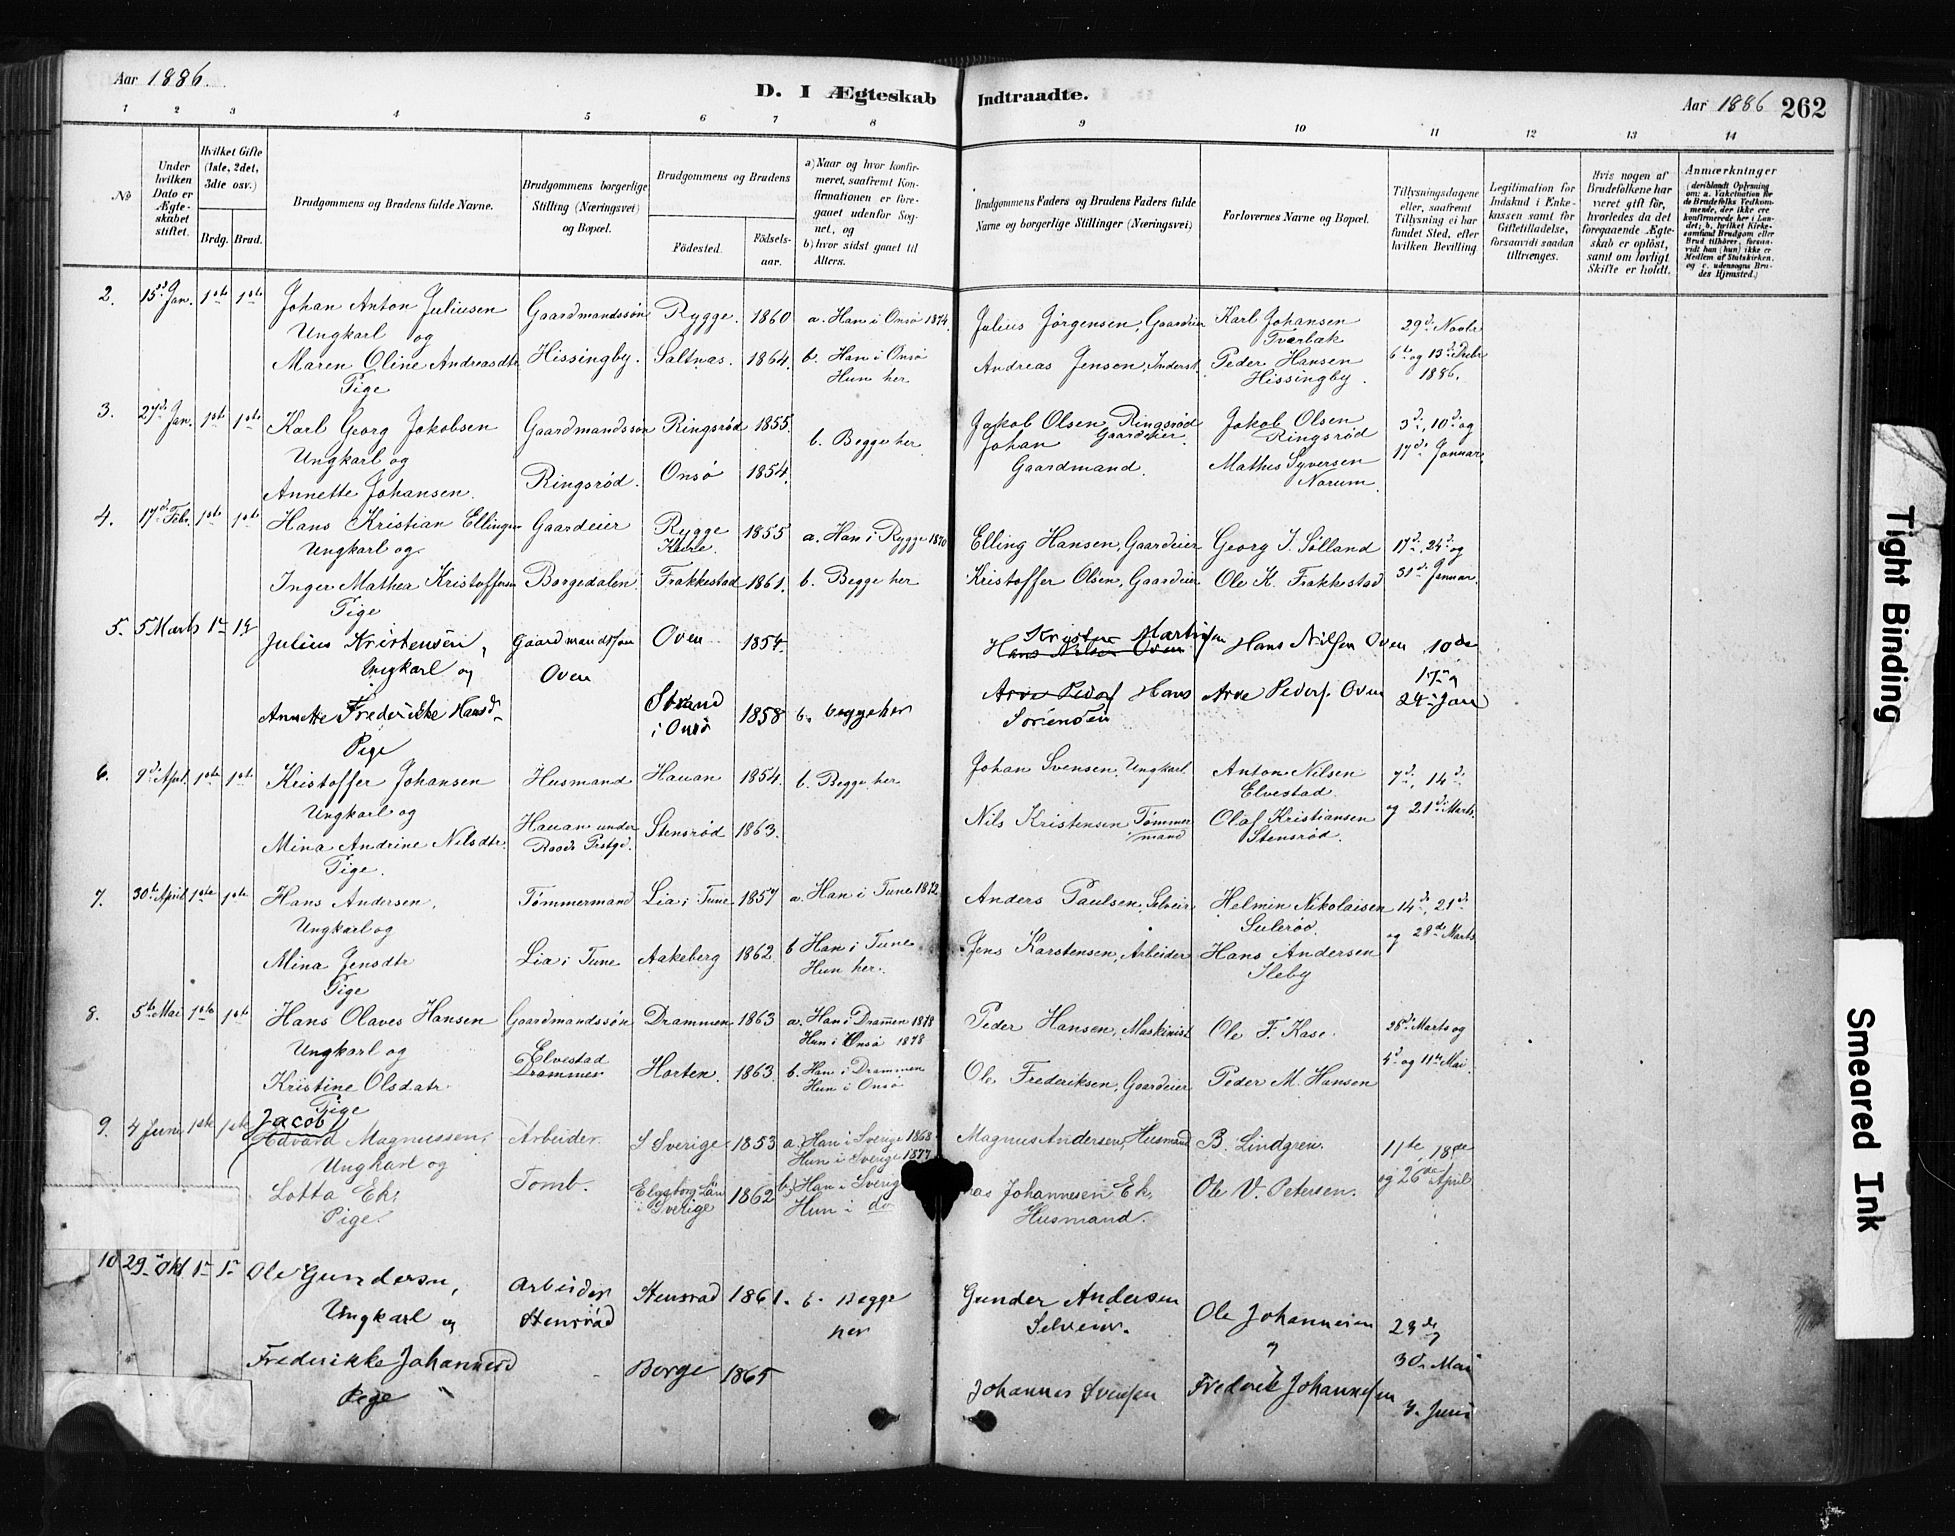 Aar 1886.
D. I Ægteskab Indtraadte.
Aar 1886 262
1 2 3 4 5 6 7 8 9 10 11 12 13 14
№
Under hvilken Dato er Ægteskabet stiftet.
Hvilket Gifte (1ste, 2det, 3die osv.)
Brdg. Brud.
Brudgommens og Brudens fulde Navne.
Brudgommens borgerlige Stilling (Næringsvei) og Bopæl.
Brudgommens og Brudens
Födested. Födselsaar.
a) Naar og hvor konfirmeret, saafremt Konfirmationen er foregaaet udenfor Sognet, og
b) hvor sidst gaaet til Alters.
Brudgommens Faders og Brudens Faders fulde Navne og borgerlige Stillinger (Næringsvei)
Forlovernes Navne og Bopæl.
Tillysningsdagene eller, saafremt Tillysning ei har fundet Sted, efter hvilken Bevilling
Legitimation for Indskud i Enkekassen samt for Giftetilladelse, forsaavidt saadan tiltrænges.
Hvis nogen af Brudefolkene har været gift før, hvorledes da det foregaaende Ægteskab er oplöst, samt om lovligt Skifte er holdt.
Anmærkninger
2. 15de Jan. 1ste 1ste Johan Anton Juliussen Gaardmandssön Rygge. 1860 a. Han i Onsö 1874. Julius Jørgensen, Gaardeier Karl Johansen 29de Novbr
Ungkarl og Tværbæk
Maren Oline Andreasdtr Hissingby. Saltnæs. 1864. b. Han i Onsö Andreas Jensen, Inderst Peder Hansen 6te og 13de Decbr
Pige Hun her Hissingby. 1886.
3. 27de Jan. 1ste 1ste Karl Georg Jakobsen Gaardmandssön Ringsrød 1855. b. Begge her Jakob Olsen, Ringsrød Jakob Olsen 3de, 10de og
Ungkarl og Johan Gaardeier. Ringsrød 17de Januar
Annette Johansen. Ringsrød. Onsö 1854. Gaardmand. Mathis Syversen
Norum.
4. 17de Febr. 1ste 1ste Hans Kristian Ellingsen Gaardeier Rygge 1855 a. Han i Rygge 1870 Elling Hansen, Gaardeier Georg J. Sølland 17de, 24de og
Ungkarl og
Inger Mathea Kristoffersen Borgedalen. Frakkestad 1861. b. Begge her Kristoffer Olsen, Gaardeier Ole K. Frakkestad 31de Januar
Pige
5. 5 Marts Julius Kristensen, Gaardmandssøn Oven 1854. Kristen Martinsen Hans Nilsen Oven 10de
Ungkarl og Oven Hans Nilsen Oven 17de og
Annette Frederikke Hansd. Strand i Onsö 1858 b. begge her Arve Peders Hans Sörensen Arve Peders. Oven 24de Jan
Pige
6. 9de April. 1ste 1ste Kristoffer Johansen Husmand Hauan 1854. b. Begge her Johan Svensen, Ungkarl. Anton Nilsen 7de, 14de
Ungkarl og Elvestad
Mina Andrine Nilsdtr. Hauan under Raade Prstgd. Stensrød 1863. Nils Kristensen Tømmermand Olaf Kristiansen og 21de Marts.
Pige. Stensrød.
7. 30te April 1ste 1ste Hans Andersen, Tømmermand Lia i Tune 1857 a. Han i Tune 1872 Anders Paulsen, Selveier Helmin Nikolaisen 14de, 21de
Ungkarl og Sulerød. og 28de Marts
Mina Jensdtr Lia i Tune Aakeberg 1862. b Han i Tune Jens Karstensen, Arbeider Hans Andersen
Pige Hun her. Sleby
8. 5te Mai 1ste 1ste Hans Olaves Hansen Gaardmandssön Drammen 1863 a. Han i Drammen 1878 Peder Hansen, Maskinist Ole F. Kase. 28de Marts og
Hun i Onsö 1878
Ungkarl og Elvestad
Kristine Olsdatr. Drammen Horten. 1863. b. Han i Drammen Ole Frederiksen, Gaardeier Peder M. Hansen 4de og 11te Mai.
Pige Hun i Onsö
9. 4 Juni 1ste 1ste Jacob
Edvard Magnussen, Arbeider. I Sverige 1853 a. Han i Sverige 1868 Magnus Andersen, Husmand B. Lindgren. 11te, 18de
Hun i Sverige 1877
Ungkarl og
Lotta Ek, Tomb. Elfsborg Län i Sverige 1862 b. Han i Sverig Johannesen Ek, Ole V. Petersen. og 26de April
Pige. Hun i do Husmand.
10 29 Okt Ole Gundersen, Arbeider Stensrød 1861. b. Begge her Gunder Andersen Ole Johannesen 23de og
Ungkarl og Stensrød Selveier. og 30. Mai
Frederikke Johannesd Borge 1865 Johannes Svensen Fredrik Johannesen 3. Juni
Pige
Tight Binding
Smeared Ink